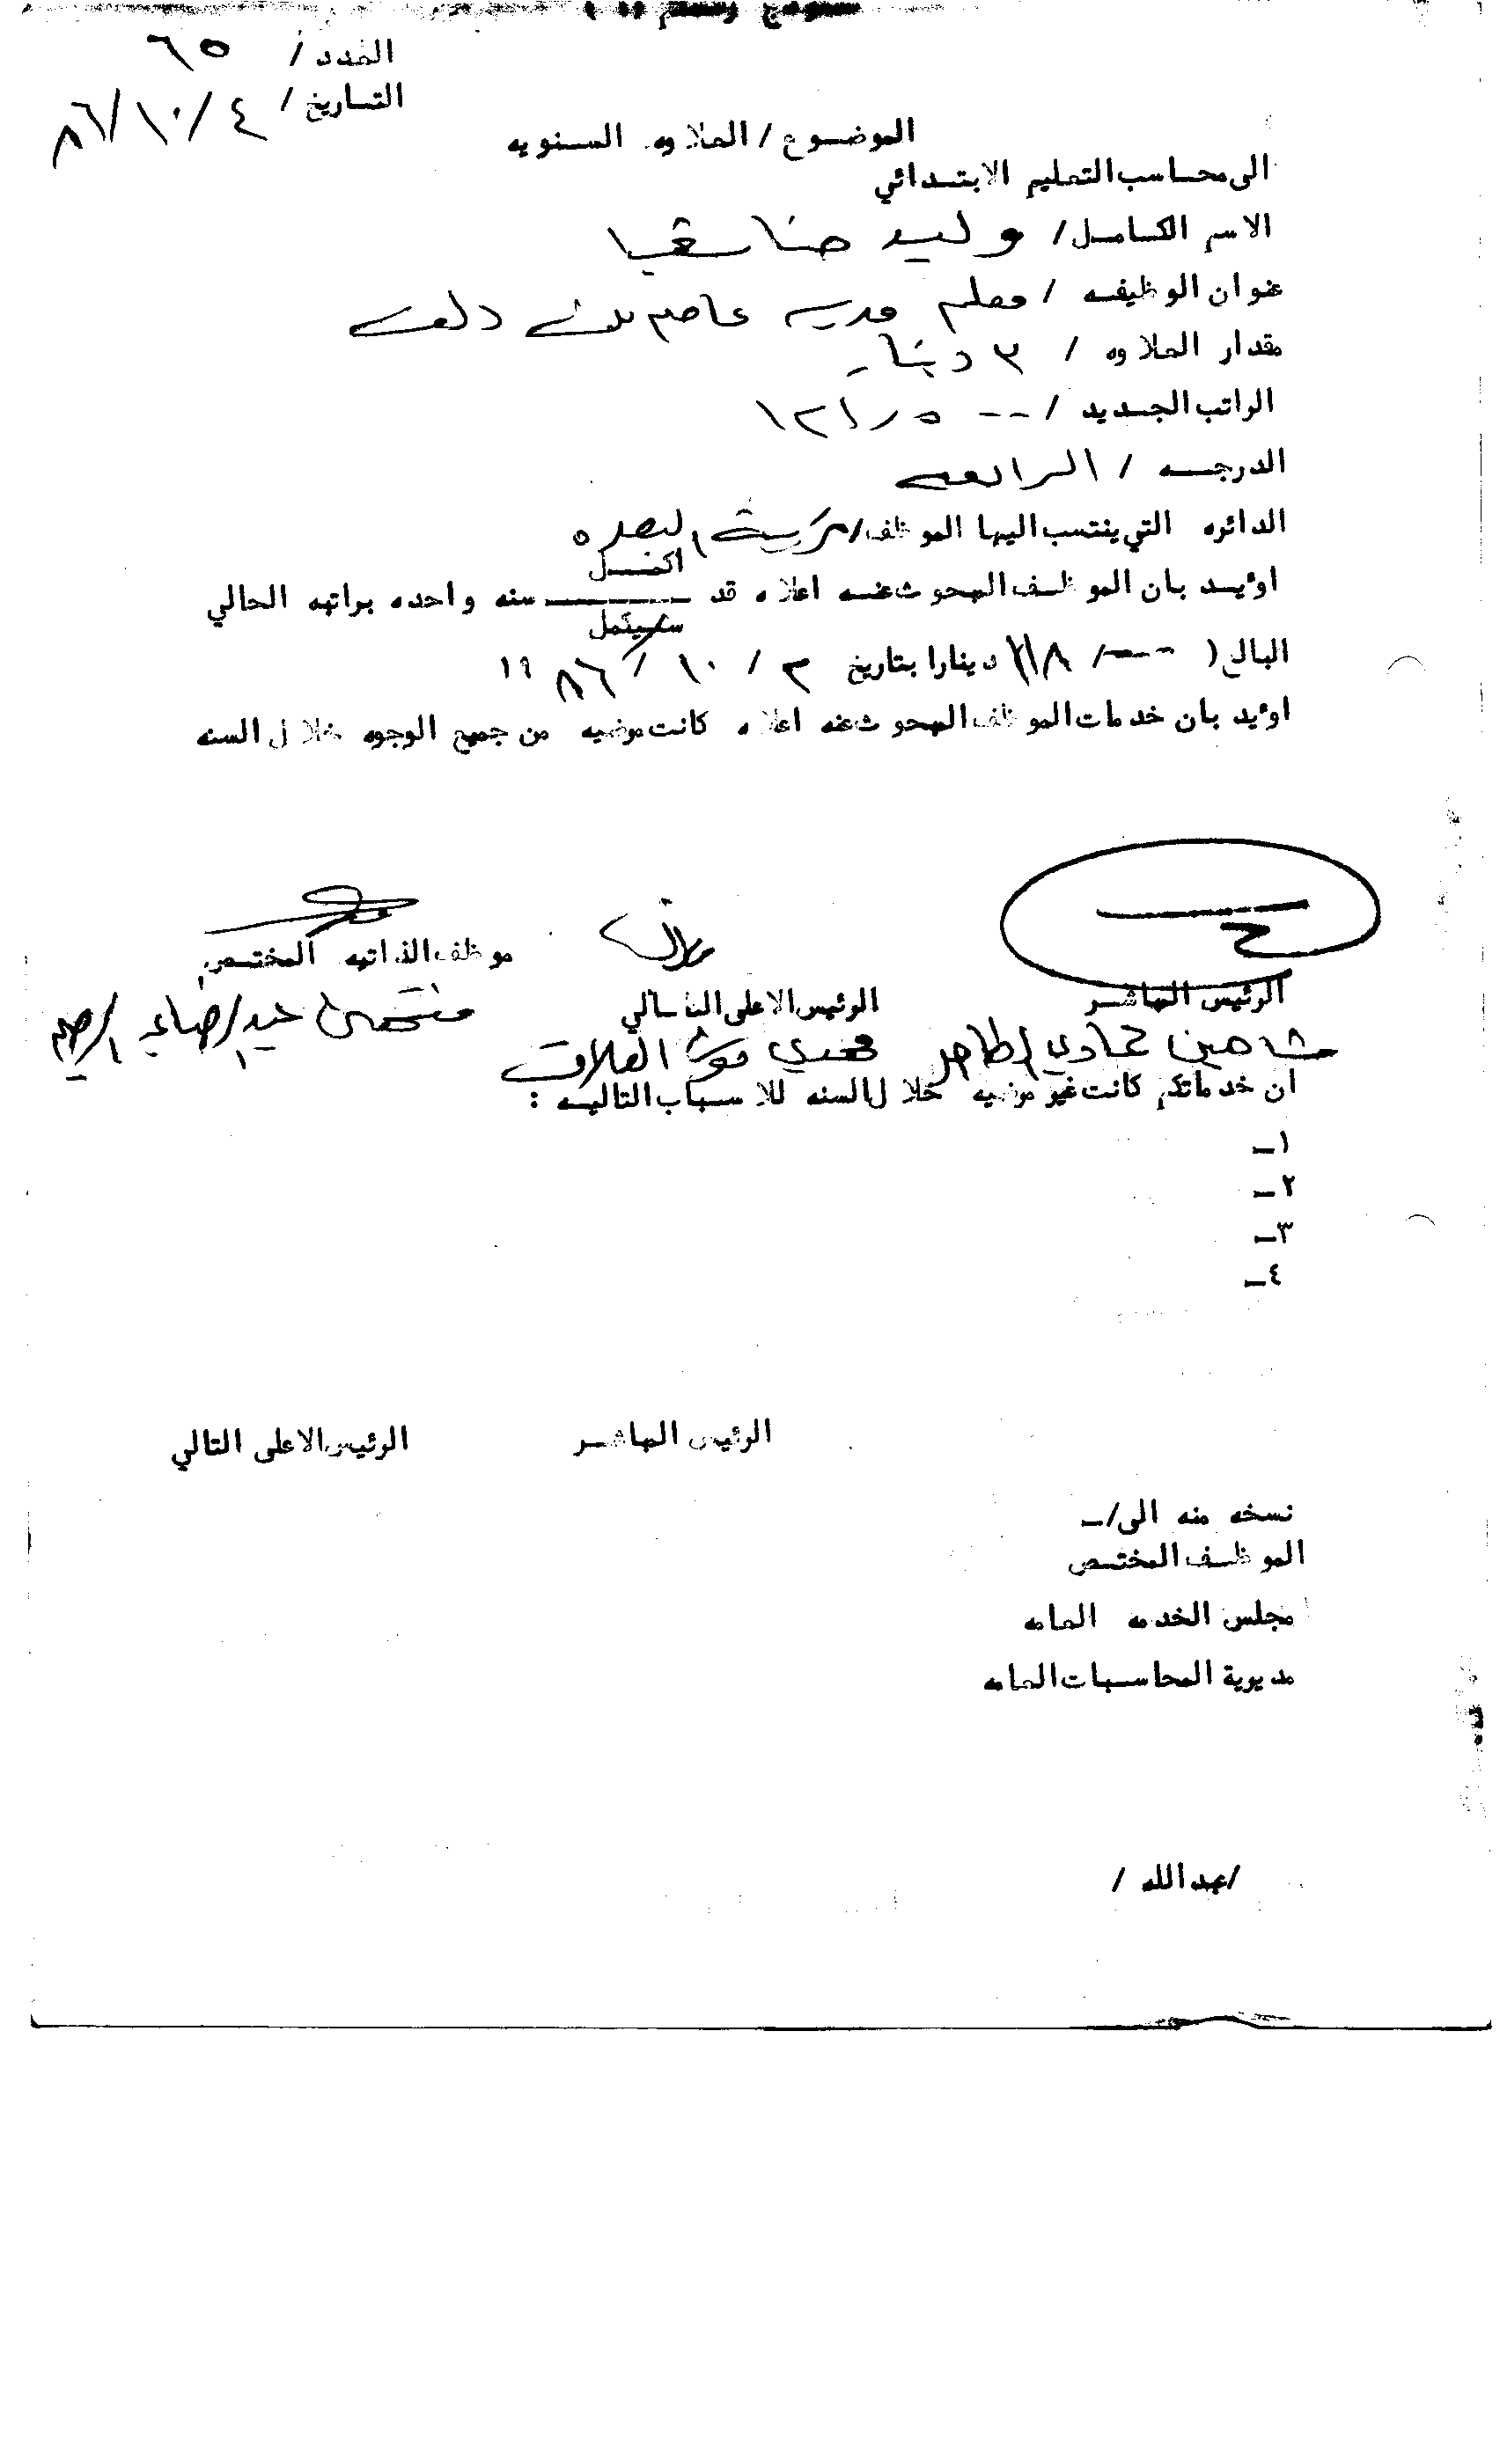 العدد / ٦٥
التاريخ / ٨٦/١٠/٤
الموضوع / العلاوه السنويه
الى محاسب التعليم الابتدائي
الاسم الكامل / وليد حنا
عنوان الوظيفه / معلم مدرسة عاصم بن دلف
مقدار العلاوه / ٣ دينار
الراتب الجديد / -- ١٢١
الدرجه / الرابعه
الدائره التي ينتسب اليها الموظف / تربية البصره
اكمل
اؤيد بان الموظف المبحوث عنه اعلاه قد ــــ سنه واحده براتبه الحالي
سيكمل
البالغ ( --- / ١١٨ دينارا بتاريخ ٣ / ١٠ / ٨٦ ١٩
اؤيد بان خدمات الموظف المبحوث عنه اعلاه كانت مرضيه من جميع الوجوه خلال السنه
الرئيس المباشر الرئيس الاعلى التالي موظف الذاتيه المختص
ان خدماتكم كانت غير مرضيه خلال السنه للاسباب التاليه :
١ـ
٢ـ
٣ـ
٤ـ
الرئيس المباشر الرئيس الاعلى التالي
نسخه منه الى /ـ
الموظف المختص
مجلس الخدمه العامه
مديرية المحاسبات العامه
/عبدالله /